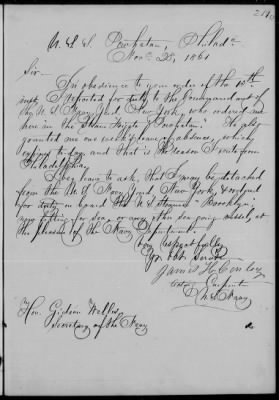 U. S. S. Powhatan, Philada
Nov. 25, 1861
Sir-
In obedience to your order of the 10th
inst, I reported for duty to the Commandant of
the U. S. Navy Yard New York, who ordered me
here in the Steam Frigate "Powhatan." He also
granted me one week's leave of absence, which
expires to day and that is the reason I write from
Philadelphia.
I beg leave to ask, that I may be detached
from the U. S. Navy Yard, New York, &
for duty on board the U. S. Steamer "Brooklyn"
now fitting for sea, or any other sea going vessel, at
the pleasure of the Navy Department.
Very respectfully
Yr. obt. Servt
James H.
Carpenter
U. S. Navy
Hon. Gideon Welles
Secretary of the Navy